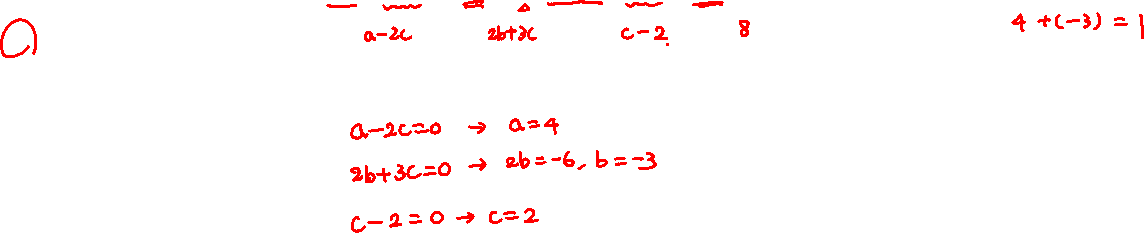 a-2c 2b+3c c-2. 8 4+(-3)=1
a-2c=0 → a=4
2b+3c=0 → 2b=-6, b=-3
c-2=0 → c=2